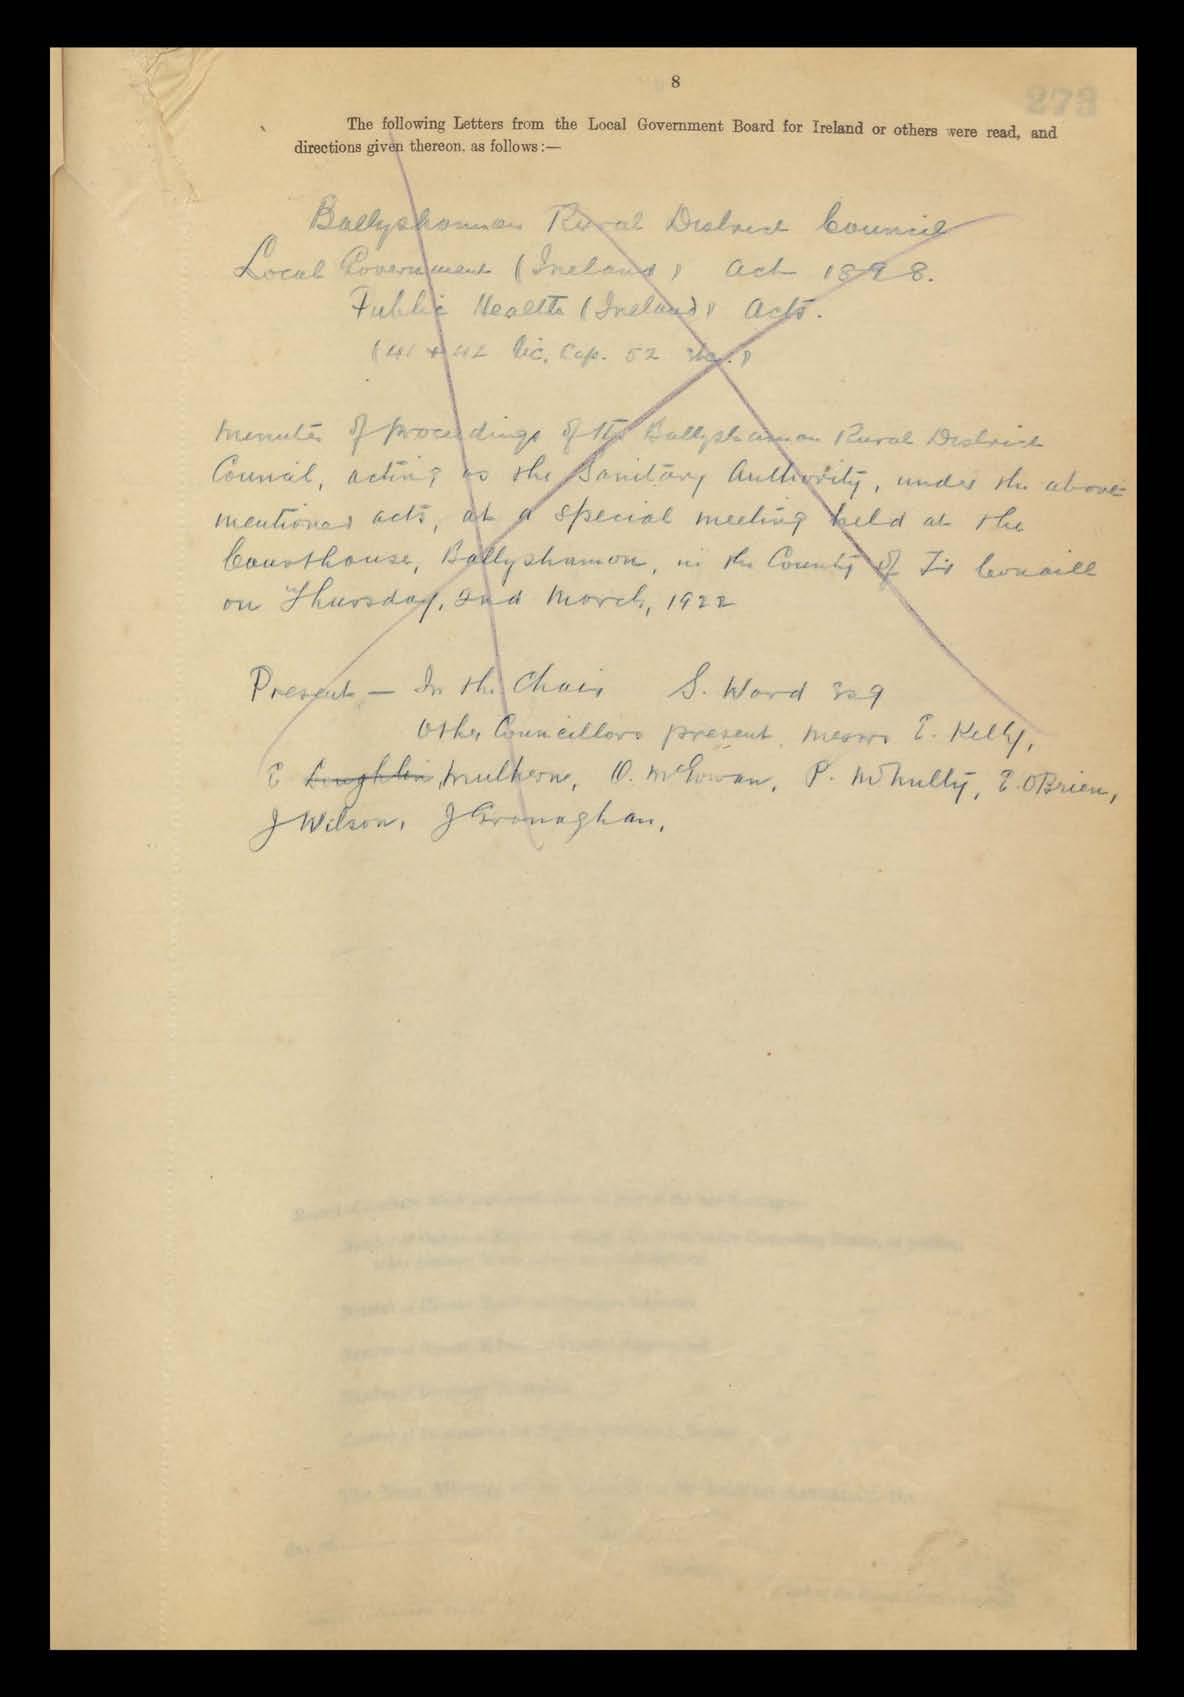 8
273
The following Letters from the Local Government Board for Ireland or others were read, and
directions given thereon, as follows:—
Ballyshannon Rural District Council
Local Government (Ireland) Act 1898.
Public Health (Ireland) Acts.
(41 & 42 Vic, Cap. 52 &c.)
Minutes of proceedings of the Ballyshannon Rural District
Council, acting as the Sanitary Authority, under the above-
mentioned acts, at a special meeting held at the
Courthouse, Ballyshannon, in the County of Tir Conaill
on Thursday, 2nd March, 1922
Present — In the Chair S. Ward Esq
Other Councillors present Messrs E. Kelly,
E Loughlin Mulherne, O. McGowan, P. McNulty, E. O'Brien,
J Wilson, J Gronaghan,